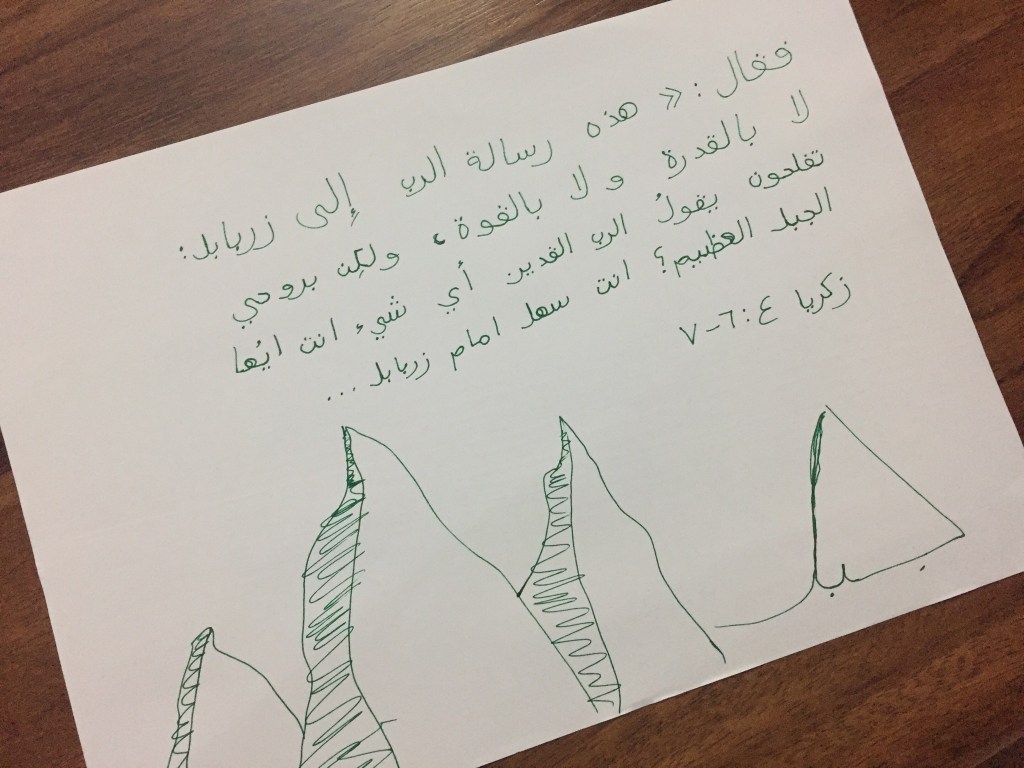 فقال: « هذه رسالة الرب إلى زربابل:
لا بالقدرة و لا بالقوة، ولكن بروحي
تفلحون يقولُ الرب القدير أي شيء انت ايُها
الجبل العظيم؟ انت سهل امام زربابل...
زكريا ٤:٦-٧